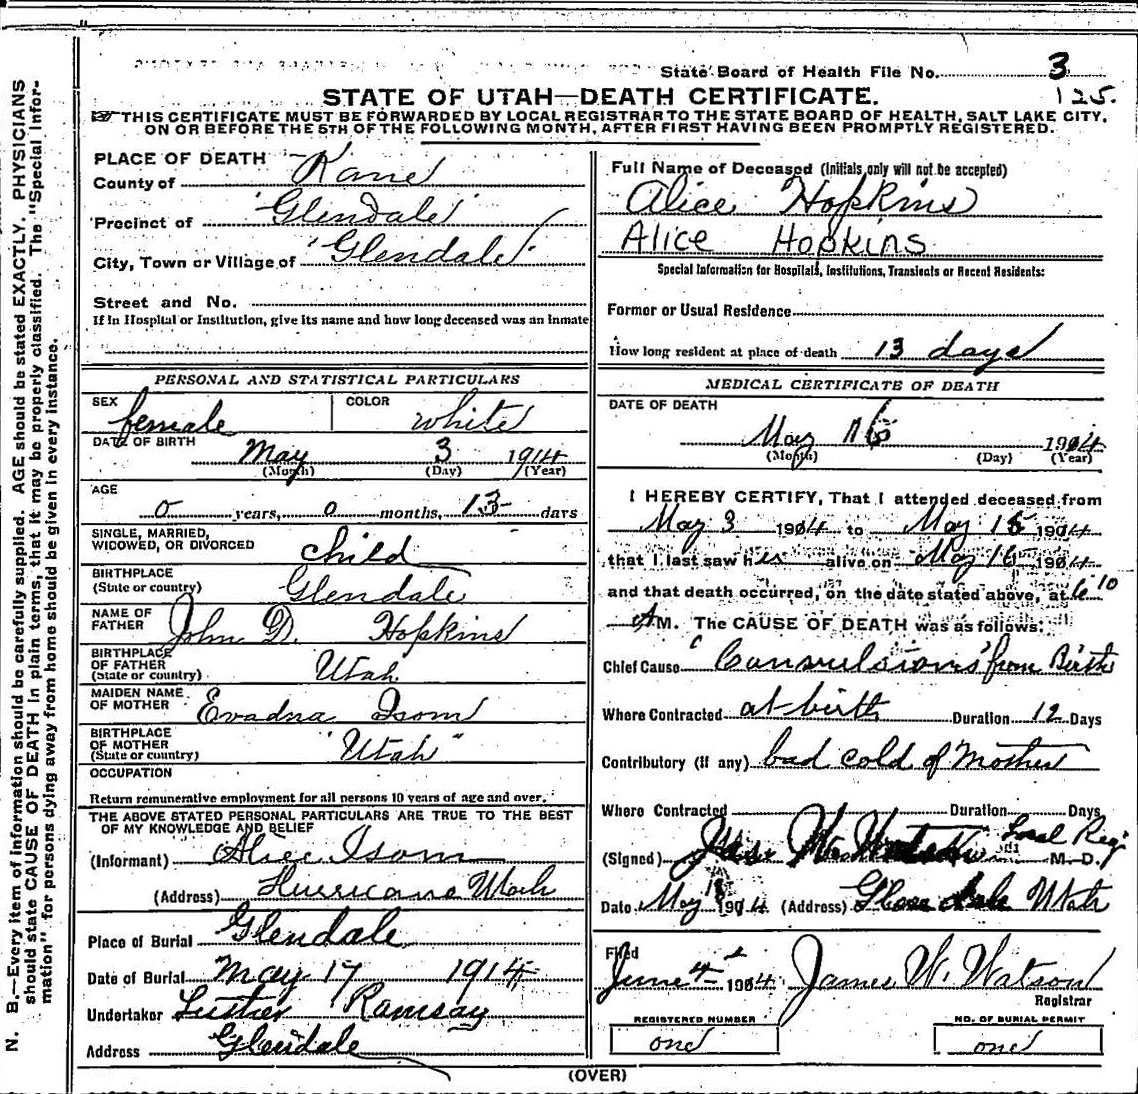 State Board of Health File No. 3
125.
STATE OF UTAH—DEATH CERTIFICATE.
THIS CERTIFICATE MUST BE FORWARDED BY LOCAL REGISTRAR TO THE STATE BOARD OF HEALTH, SALT LAKE CITY,
ON OR BEFORE THE 5TH OF THE FOLLOWING MONTH, AFTER FIRST HAVING BEEN PROMPTLY REGISTERED.
N. B.—Every item of information should be carefully supplied. AGE should be stated EXACTLY. PHYSICIANS
should state CAUSE OF DEATH in plain terms, that it may be properly classified. The "Special Infor-
mation" for persons dying away from home should be given in every instance.
PLACE OF DEATH
County of Kane
Precinct of Glendale
City, Town or Village of Glendale
Street and No.
If in Hospital or Institution, give its name and how long deceased was an inmate
PERSONAL AND STATISTICAL PARTICULARS
SEX female COLOR white
DATE OF BIRTH May 3 1914
(Month) (Day) (Year)
AGE
0 years, 0 months, 13 days
SINGLE, MARRIED,
WIDOWED, OR DIVORCED child
BIRTHPLACE
(State or country) Glendale
NAME OF
FATHER John D. Hopkins
BIRTHPLACE
OF FATHER
(State or country) Utah
MAIDEN NAME
OF MOTHER Evadna Isom
BIRTHPLACE
OF MOTHER
(State or country) "Utah"
OCCUPATION
Return remunerative employment for all persons 10 years of age and over.
THE ABOVE STATED PERSONAL PARTICULARS ARE TRUE TO THE BEST
OF MY KNOWLEDGE AND BELIEF
(Informant) Alice Isom
(Address) Hurricane Utah
Place of Burial Glendale
Date of Burial May 17 1914
Undertaker Ramsay
Address Glendale
Full Name of Deceased (Initials only will not be accepted)
Alice Hopkins
Alice Hopkins
Special Information for Hospitals, Institutions, Transients or Recent Residents:
Former or Usual Residence
How long resident at place of death 13 days
MEDICAL CERTIFICATE OF DEATH
DATE OF DEATH
May 16 1914
(Month) (Day) (Year)
I HEREBY CERTIFY, That I attended deceased from
May 3 1914 to May 15 1914
that I last saw her alive on May 16 1914
and that death occurred, on the date stated above, at 6 10
A M. The CAUSE OF DEATH was as follows:
Chief Cause "Convulsions" from Birth
Where Contracted at birth Duration 12 Days
Contributory (if any) bad cold of Mother
Where Contracted Duration Days
(Signed) James W. Watson Local Reg M. D.
Date May 1914 (Address) Glendale Utah
Filed
June 1914 James W. Watson
Registrar
REGISTERED NUMBER NO. OF BURIAL PERMIT
one one
(OVER)